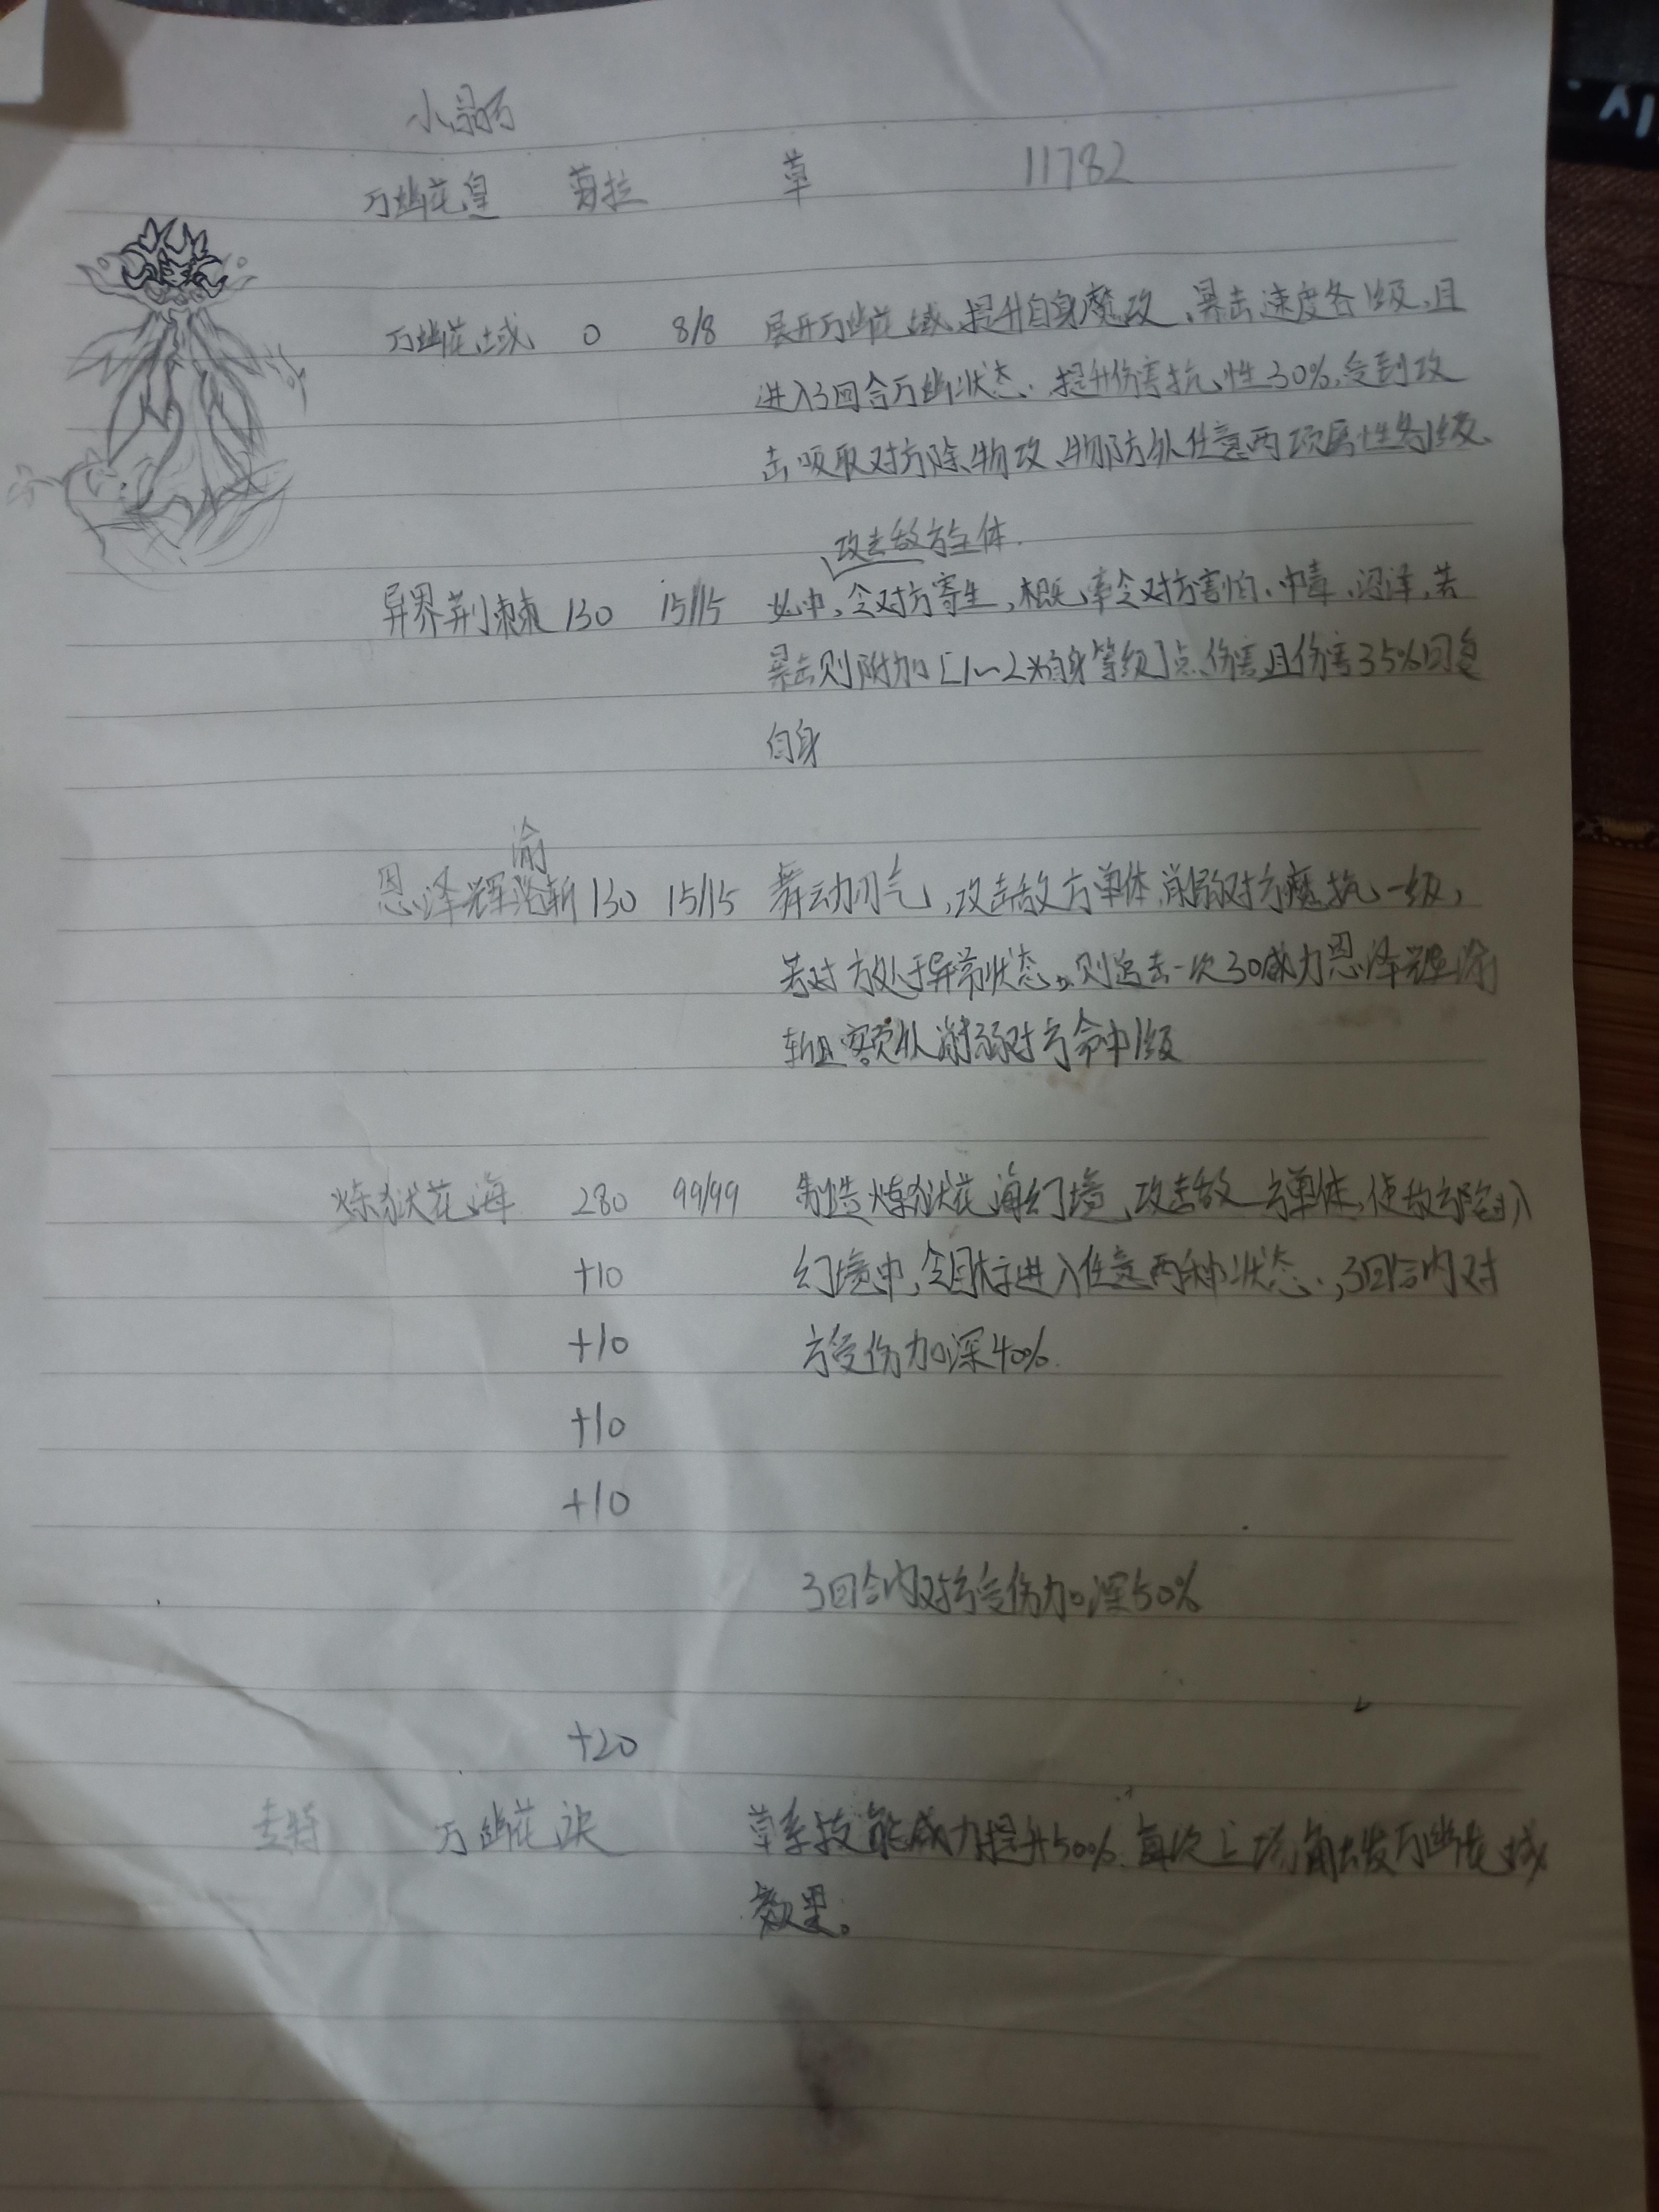 小
万幽花皇 菊拉 草 11782
万幽花域 0 8/8 展开万幽花域,提升自身魔攻、暴击速度各1级,且
进入3回合万幽状态.提升伤害抗性30%,受到攻
击吸取对方除物攻、物防外任意两项属性各1级.
攻击敌方全体.
异界荆棘 130 15/15 必中,令对方寄生,概率令对方害怕、中毒、沼泽,若
暴击则附加[1~2×自身等级]点伤害且伤害35%回复
自身
渝
恩泽辉洛斩 130 15/15 舞动刃气,攻击敌方单体,削弱对方魔抗一级,
若对方处于异常状态,则追击一次30威力恩泽辉渝
斩且额外削弱对方命中1级
炼狱花海 280 99/99 制造炼狱花海幻境,攻击敌方单体,使敌方陷入
+10 幻境中,令目标进入任意两种状态,3回合内对
+10 方受伤加深40%.
+10
+10
3回合内对方受伤加深50%
+20
专特 万幽花诀 草系技能威力提升50%.每次上场触发万幽花域
效果。